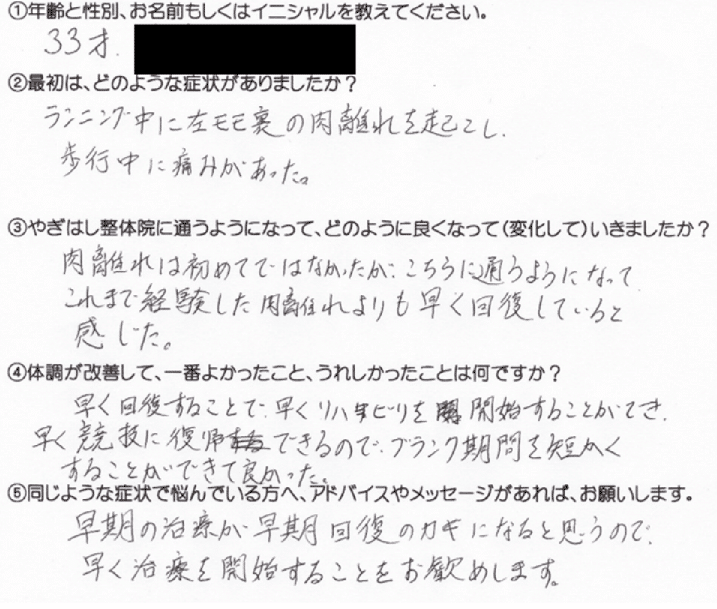 ①年齢と性別、お名前もしくはイニシャルを教えてください。
33才.
②最初は、どのような症状がありましたか？
ランニング中に左モモ裏の肉離れを起こし、
歩行中に痛みがあった。
③やぎはし整体院に通うようになって、どのように良くなって(変化して)いきましたか？
肉離れは初めてではなかったが、こちらに通うようになって
これまで経験した肉離れよりも早く回復していると
感じた。
④体調が改善して、一番よかったこと、うれしかったことは何ですか？
早く回復することで、早くリハビリを開始することができ、
早く競技に復帰できるので、ブランク期間を短かく
することができて良かった。
⑤同じような症状で悩んでいる方へ、アドバイスやメッセージがあれば、お願いします。
早期の治療が早期回復のカギになると思うので、
早く治療を開始することをお歓めします。